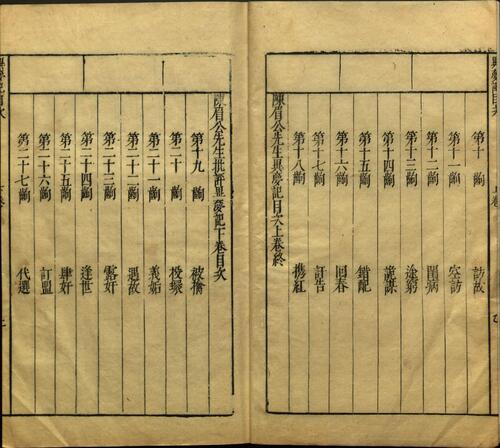 第十齣 訪故
第十一齣 空訪
第十二齣 閨病
第十三齣 途窮
第十四齣 詭謀
第十五齣 錯配
第十六齣 回春
第十七齣 訂告
第十八齣 携紅
陳眉公先生異夢記目次上卷終
陳眉公先生批評異夢記下卷目次
第十九齣 被擒
第二十齣 投環
第二十一齣 義姤
第二十二齣 遇故
第二十三齣 露奸
第二十四齣
第二十五齣 肆奸
第二十六齣 訂盟
第二十七齣 代選